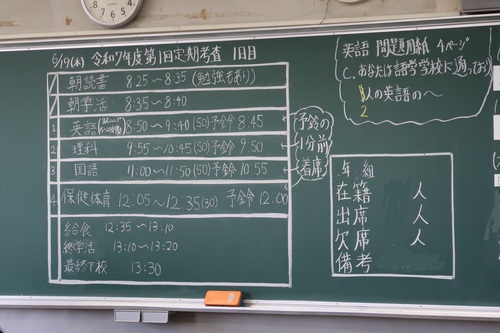 6/19(木) 令和7年度第1回定期考査 1日目
朝読書 8:25〜8:35 (勉強もあり)
朝学活 8:35〜8:40
1 英語 8:50〜9:40(50)予鈴 8.45
2 理科 9:55〜10:45(50)予鈴 9.50
3 国語 11:00〜11:50(50)予鈴 10.55
4 保健体育 12.05〜12.35(30) 予鈴 12.00
給食 12:35〜13:10
終学活 13:10〜13:20
最終下校 13:30
予鈴の
1分前
着席
英語 問題用紙 4ページ
C. あなたは語学学校に通っており
8人の英語の〜
2
年 組
在籍 人
出席 人
欠席 人
備考